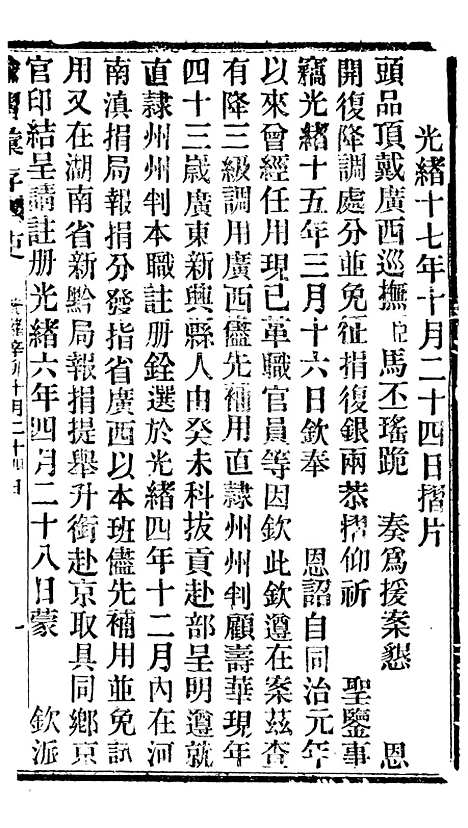 光緒十七年十月二十四日摺片
頭品頂戴廣西巡撫臣馬丕瑤跪 奏爲援案懇 恩
開復降調處分並免征捐復銀兩恭摺仰祈 聖鑒事
竊光緒十五年三月十六日欽奉 恩詔自同治元年
以來曾經任用現已革職官員等因欽此欽遵在案茲查
有降三級調用廣西儘先補用直隸州州判顧壽華現年
四十三歲廣東新興縣人由癸未科拔貢赴部呈明遵就
直隸州州判本職註册銓選於光緒四年十二月內在河
南滇捐局報捐分發指省廣西以本班儘先補用並免試
用又在湖南省新黔局報捐提舉升銜赴京取具同鄉京
官印結呈請註册光緒六年四月二十八日蒙 欽派
諭摺彙存 光緒辛卯十月二十四日 一